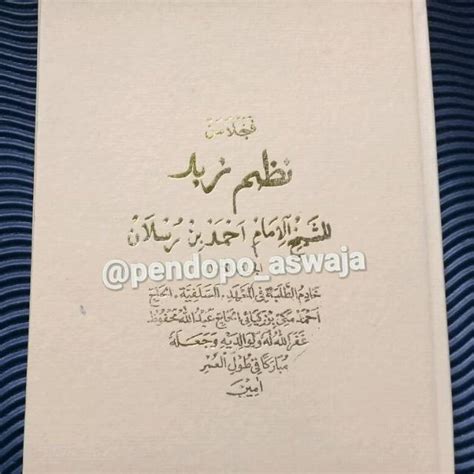 فنجلاسن
نظم زبد
للشيخ الإمام احمد بن رسلان
@pendopo_aswaja
خادم الطلبة في المعهد السلفية الحاج
احمد مكي بن الحاج عبد الله محفوظ
غفر الله له ولوالديه وجعله
مباركا في طول العمر
امين